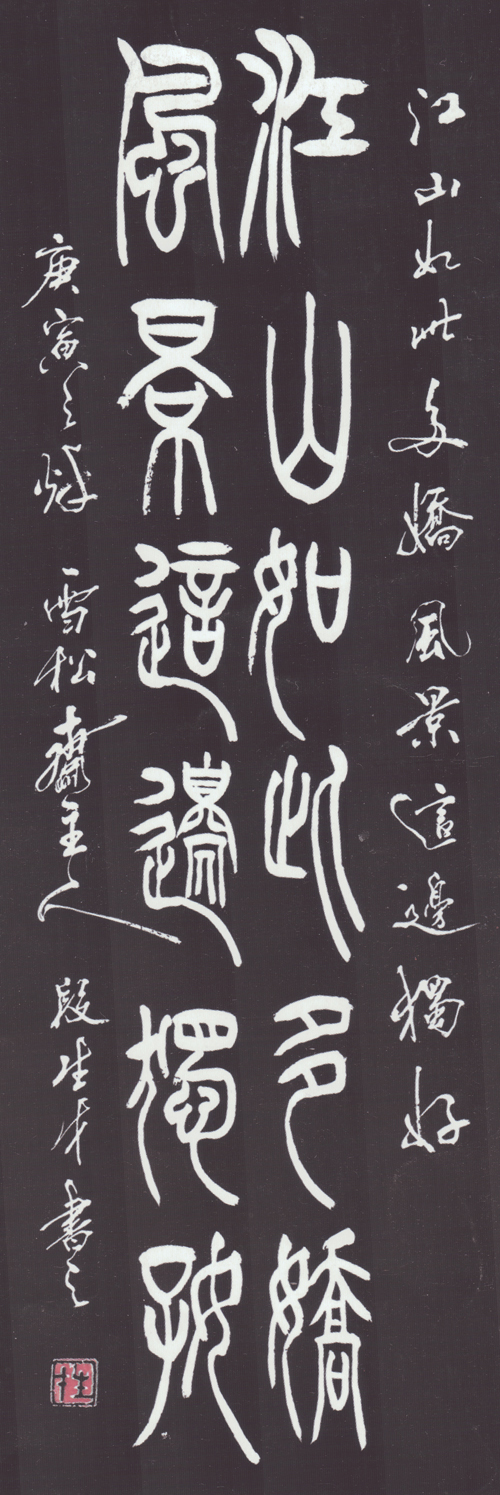 江山如此多嬌風景這邊獨好
江山如此多嬌
風景這邊獨好
庚寅之秋 雪松齋主人 段生才書之